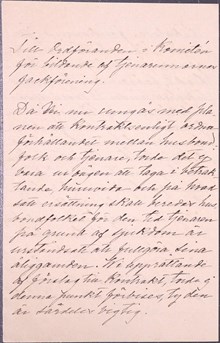 Till Ordföranden i Komitén
för bildande af tjenarinnornas
fackförening.
Då Ni nu umgås med pla-
nen att kontraktsenligt ordna
förhållandet mellan husbond-
folk och tjenare, torde det ej
vara ur vägen att taga i betrak-
tande, huruvida och på hvad
sätt ersättning skall beredas hus-
bondfolket för den tid tjenaren
på grund af sjukdom är
urståndsatt att fullgöra sina
åligganden. Vid upprättande
af förslag till kontrakt, torde ej
denna punkt förbises, ty den
är särdeles vigtig.